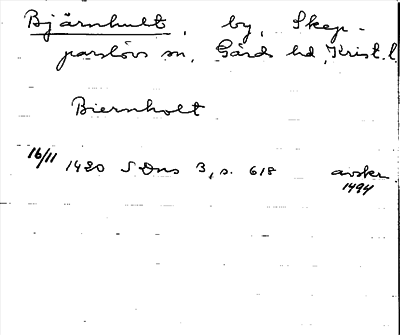 Bjärnhult, by, Skep-
parslövs sn, Gärds hd, Krist. l
Biernholt
16/11 1420 SDns 3, s. 618 avskr
1494